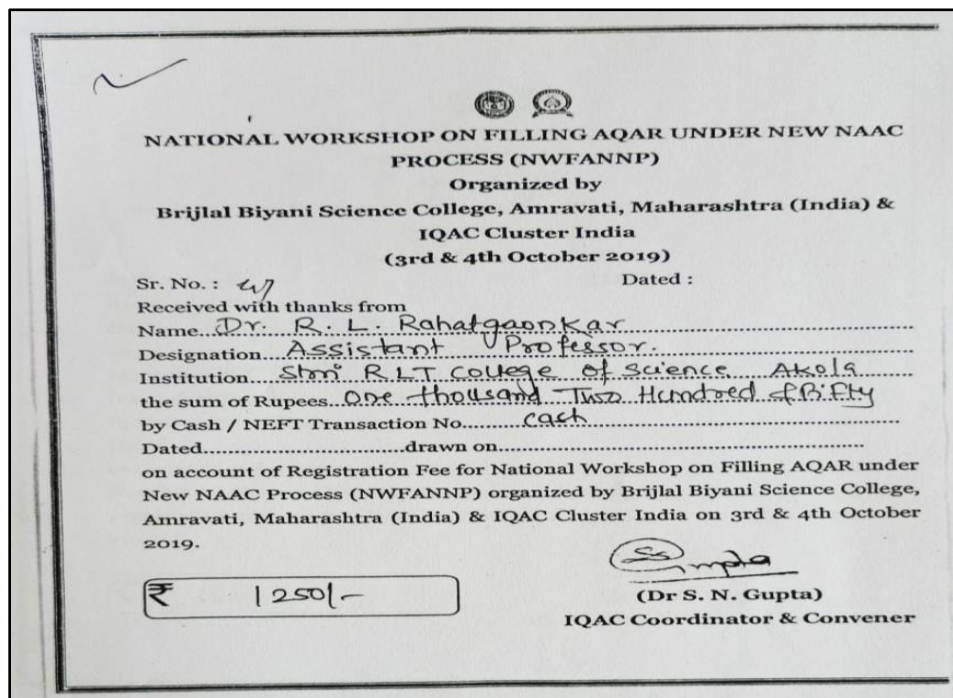 NATIONAL WORKSHOP ON FILLING AQAR UNDER NEW NAAC
PROCESS (NWFANNP)
Organized by
Brijlal Biyani Science College, Amravati, Maharashtra (India) &
IQAC Cluster India
(3rd & 4th October 2019)
Sr. No. : Dated :
Received with thanks from
Name...Dr. R. L. Rahatgaonkar
Designation...Assistant Professor.
Institution...Shri RLT College of Science Akola
the sum of Rupees...One thousand Two Hundred & Fifty
by Cash / NEFT Transaction No...cash
Dated...drawn on...
on account of Registration Fee for National Workshop on Filling AQAR under
New NAAC Process (NWFANNP) organized by Brijlal Biyani Science College,
Amravati, Maharashtra (India) & IQAC Cluster India on 3rd & 4th October
2019.
₹ 1250/-
Gupta
(Dr S. N. Gupta)
IQAC Coordinator & Convener